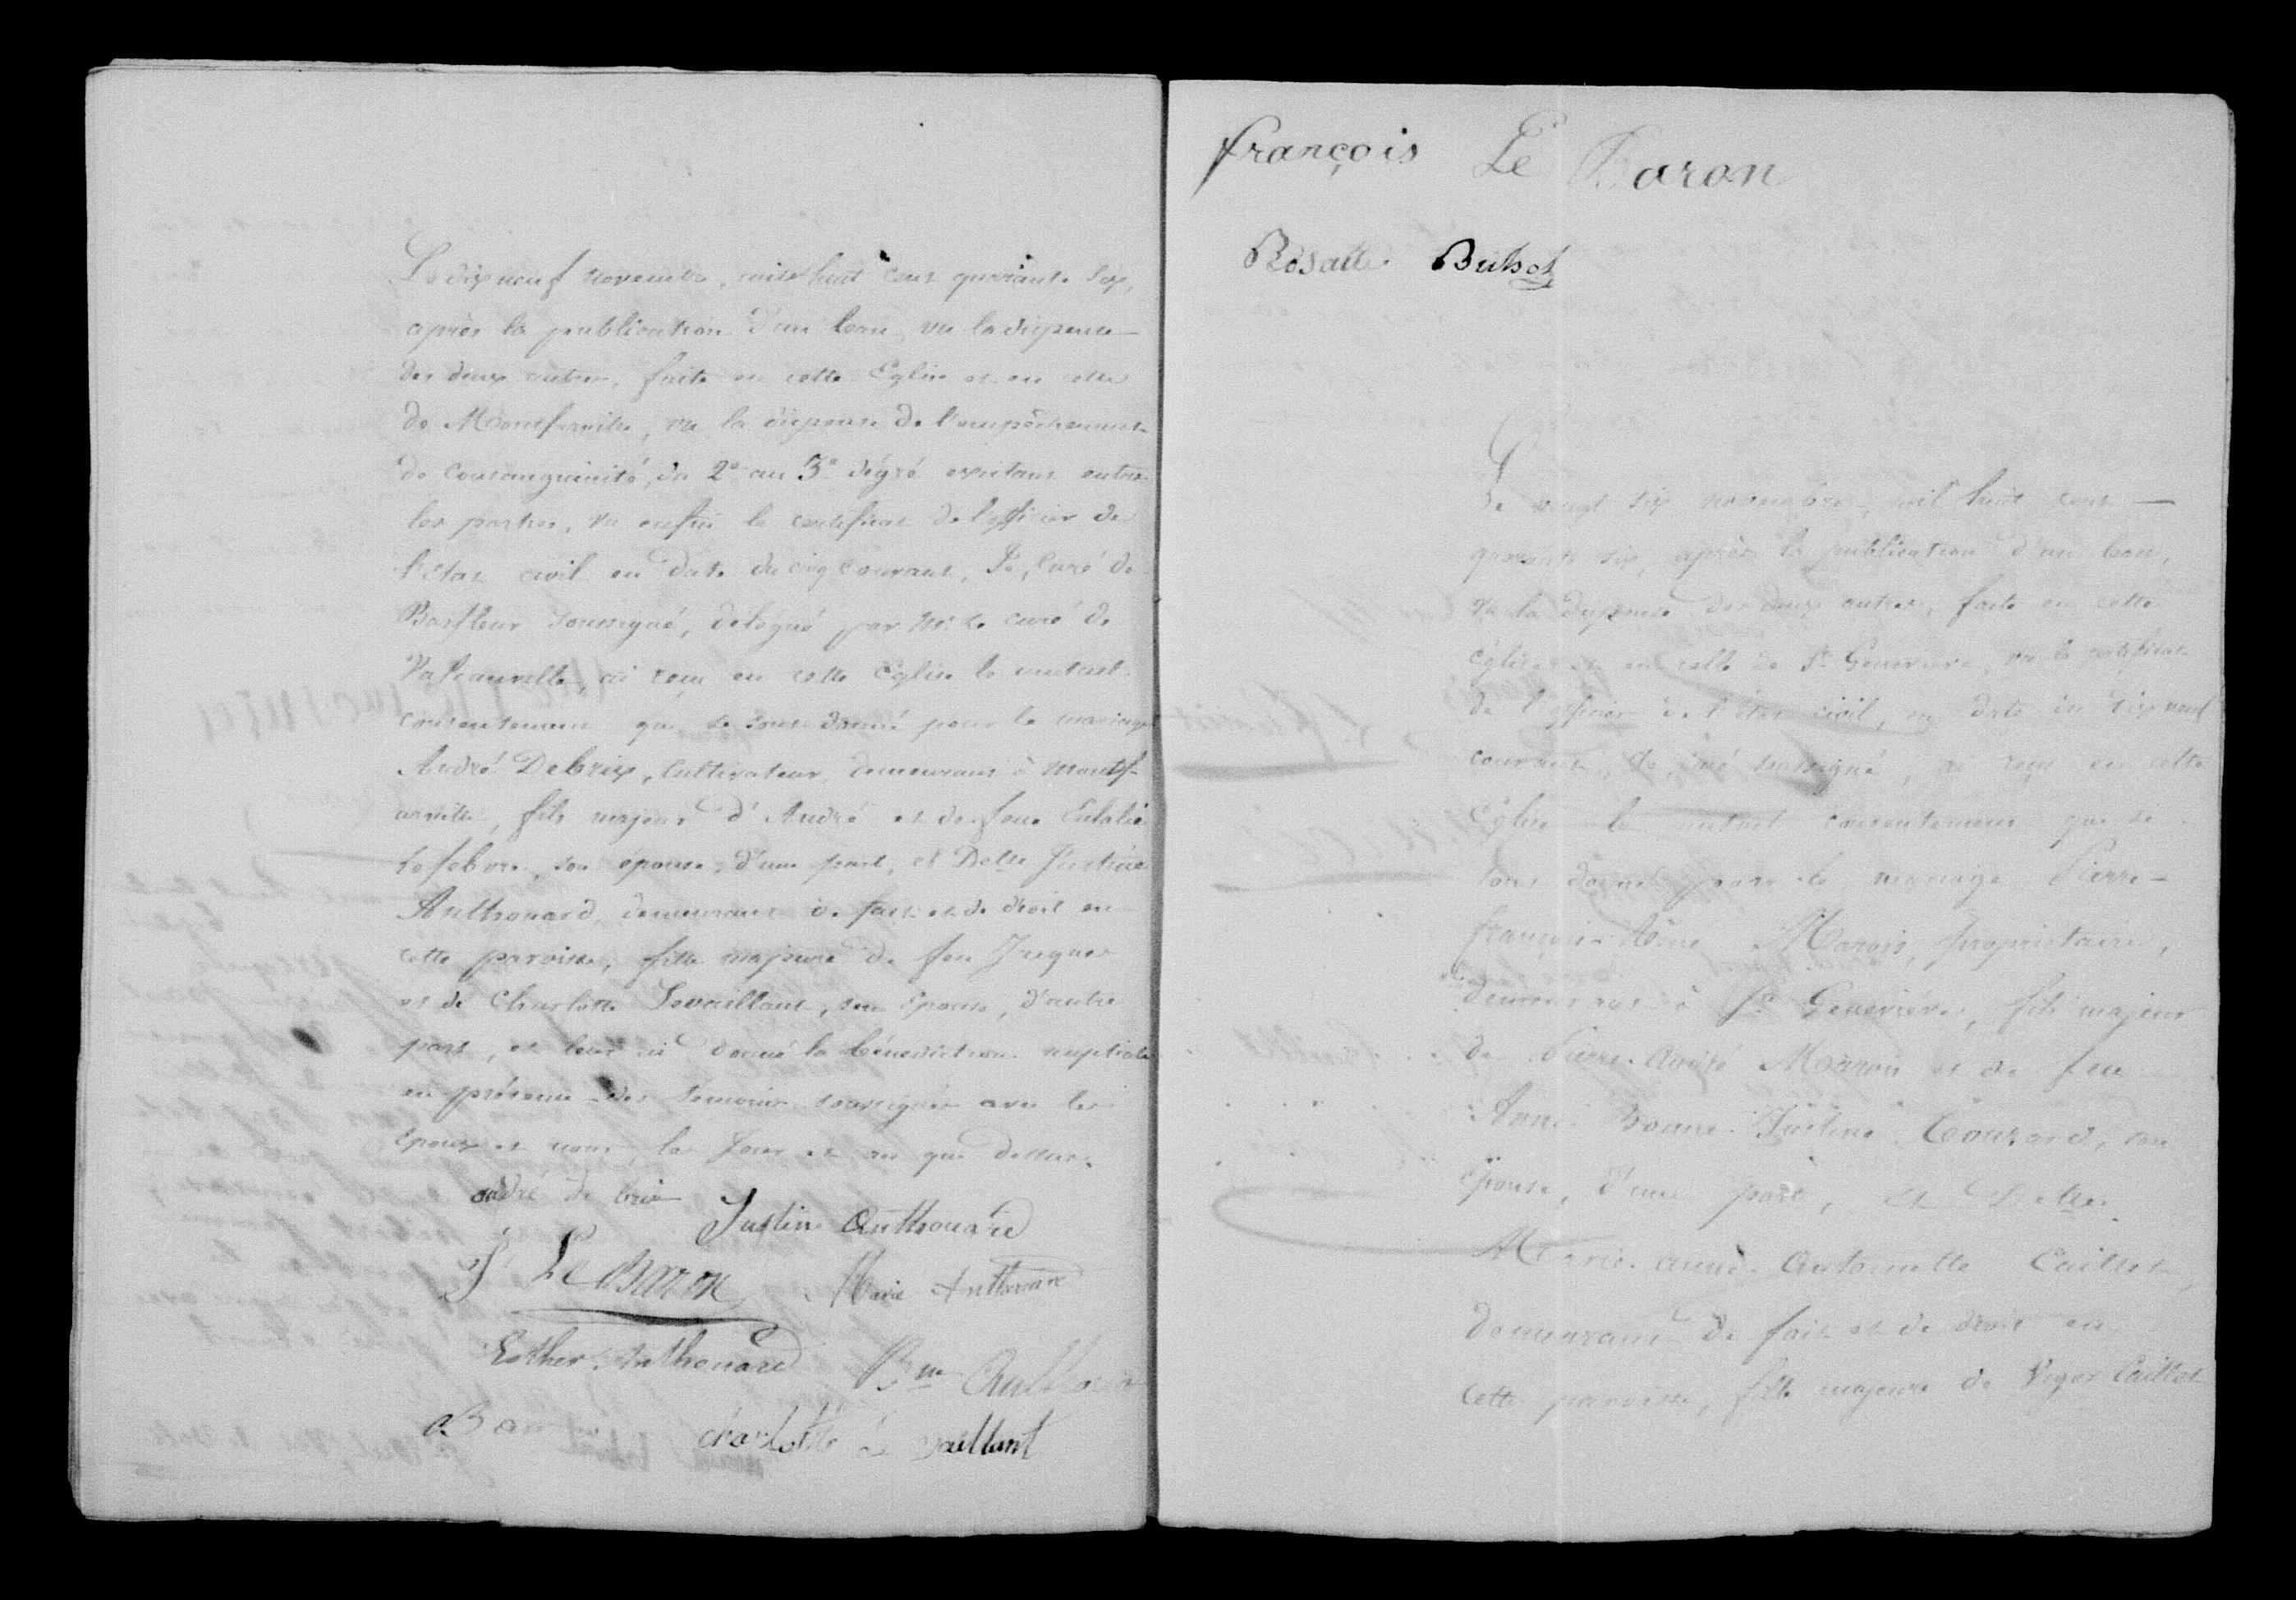 Le dix neuf novembre, mil huit cent quarante six,
après la publication d'un ban, vu la dispense
des deux autres, faite en cette Eglise et en celle
de Montfarville, vu la dispense de l'empêchement
de consanguinité, du 2e au 3e dégré existant entre
les parties, vu enfin le certificat de l'officier de
l'état civil en date du cinq courant, Je, curé de
Barfleur soussigné, délégué par Mr. le curé de
ai reçu en cette Eglise le mutuel
consentement que se sont donné pour le mariage
André Debrix, cultivateur, demeurant à Montf-
arville, fils majeur d'André et de feue Eulalie
Lefebvre, son épouse, d'une part, et Delle Justine
Anthouard, demeurant de fait et de droit en
cette paroisse, fille majeure de feu Jacques
et de Charlotte Levaillant, son épouse, d'autre
part, et leur ai donné la bénédiction nuptiale
en présence des témoins soussignés avec les
époux et nous, les jour et an que dessus.
andré de brix Justine Anthouard
Le Baron Marie Anthouard
Esther Anthouard Bm
charlotte le vaillant
françois Le Baron
Rosalie Buhot
Le vingt six novembre, mil huit cent
quarante six, après la publication d'un ban,
vu la dispense des deux autres, faite en cette
église et en celle de Ste Geneviève, vu le certificat
de l'officier de l'état civil, en date du dix neuf
courant, Je, curé soussigné, ai reçu en cette
Eglise le mutuel consentement que se
sont donné pour le mariage Pierre-
françois Marois, propriétaire,
demeurant à Ste Geneviève, fils majeur
de Pierre Marois et de feue
Anne Bonne Justine Touzard, son
épouse, d'une part, et Delle
Marie anne Antoinette Caillet,
demeurant de fait et de droit en
cette paroisse, fille majeure de Vigor Caillet